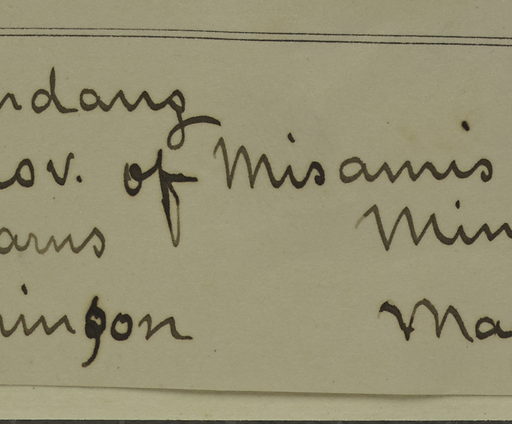 ndang
ov. of Misamis
arns Min
ingon Ma